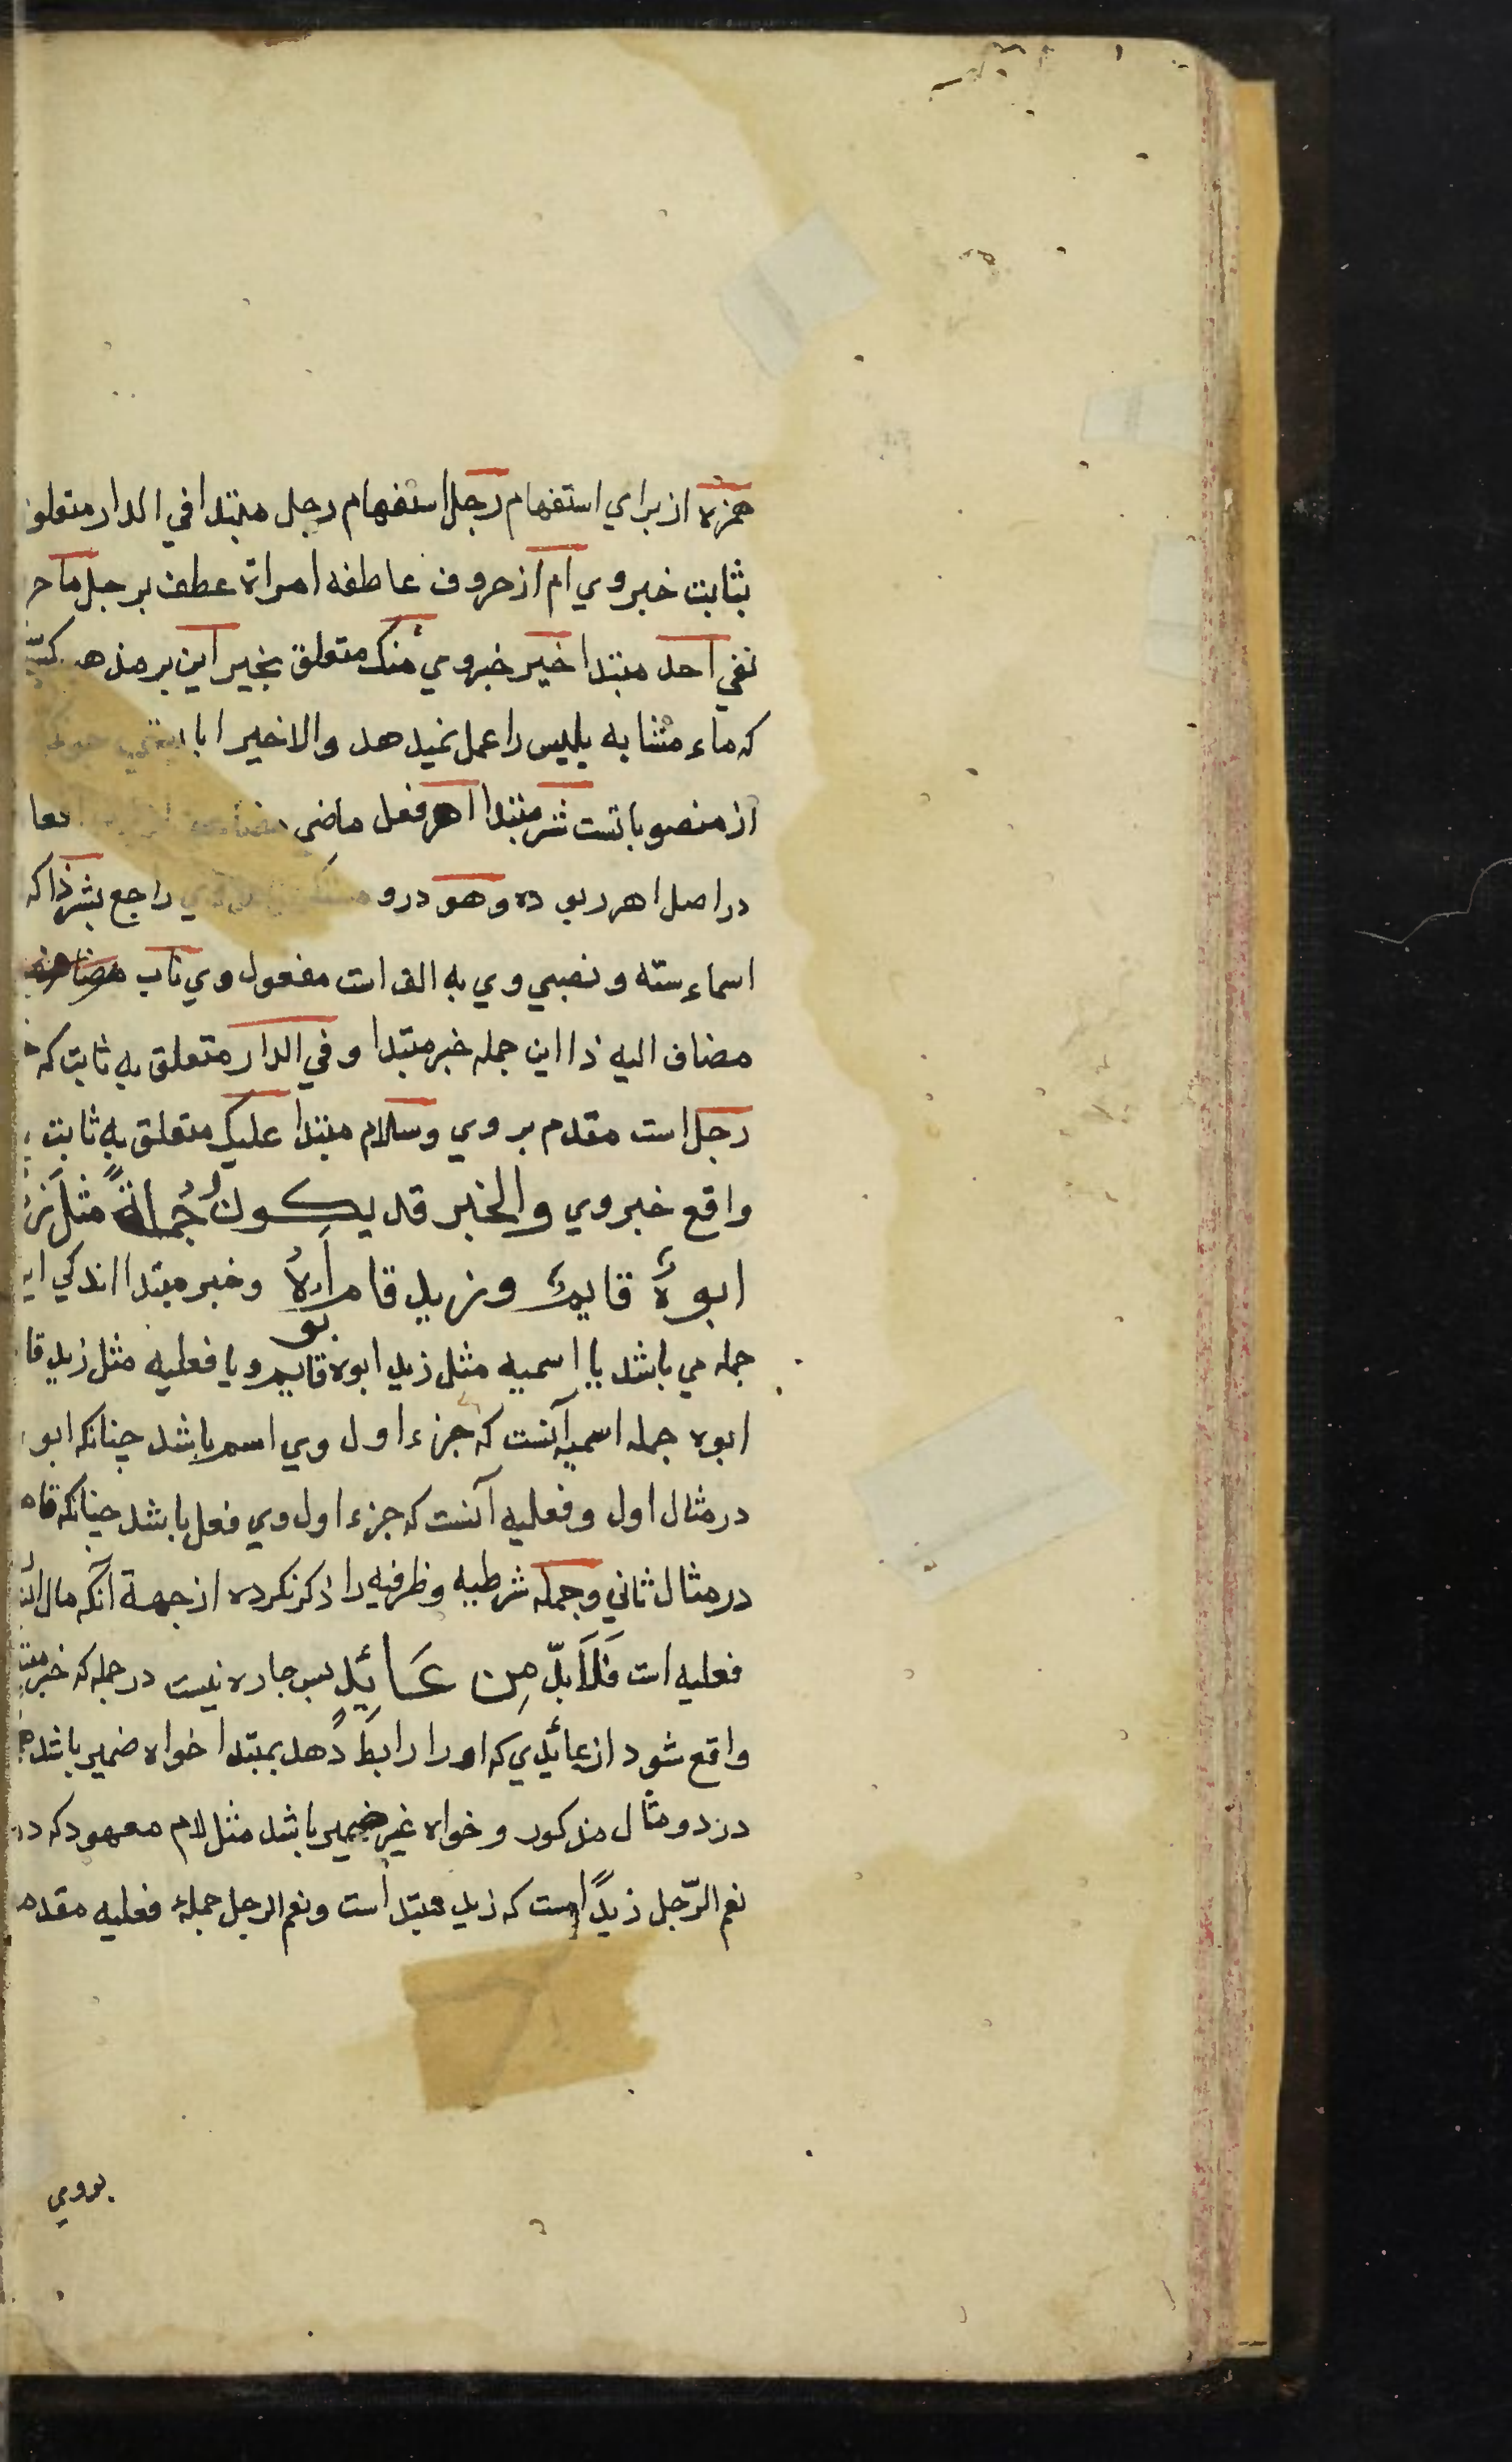 همزه از براي استفهام رجل استفهام رجل مبتدا في الدار متعلق
بثابت خبر وي ام از حروف عاطفه امراة عطف برجل ما حر
نفي احد مبتدا خير خبر وي منك متعلق بخير اين بر مذهب
كه ماء مشابه بليس را عمل نميدهد والا خيرا با
از منصوباتست شر مبتدا اهر فعل ماضي
در اصل اهرر بوده و هو درو راجع بشر ذا كه
اسماء سته و نصبي وي به الف است مفعول وي ناب مضاف
مضاف اليه ذا اين جمله خبر مبتدا و في الدار متعلق به ثابت كه
رجل است مقدم بر وي وسلام مبتدا عليك متعلق به ثابت
واقع خبر وي والخبر قد يكون جُملةً مثل
ابوهُ قايمٌ وزيد قام ابوهُ وخبر مبتدا اندكي
جمله مي باشد يا اسميه مثل زيد ابوه قايم و يا فعليه مثل زيد قا
ابوه جمله اسميه آنست كه جزء اول وي اسم باشد چنانكه ابو
در مثال اول و فعليه آنست كه جزء اول وي فعل باشد چنانكه قام
در مثال ثاني و جمله شرطيه و ظرفيه را ذكر نكرده از جهة آنكه مال
فعليه است فَلَابدّ مِن عَائِدٍ پس چاره نيست در جمله كه خبر
واقع شود از عائدي كه او را رابط دهد بمبتدا خواه ضمير باشد
در دو مثال مذكور و خواه غير ضمير باشد مثل لام معهود كه در
نعم الرّجل زيدًا است كه زيد مبتدا است و نعم الرجل جملهٔ فعليه مقدم
بروي